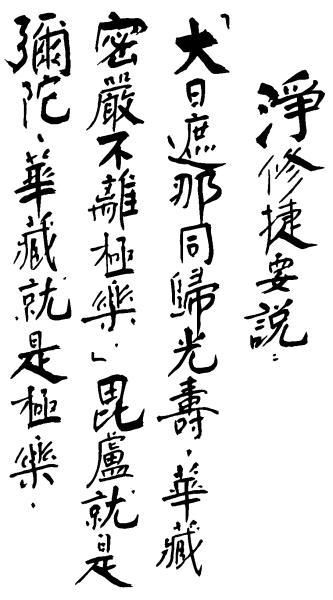 淨修捷要說：
「大日遮那同歸光壽，華藏
密嚴不離極樂。」毘盧就是
彌陀，華藏就是極樂。